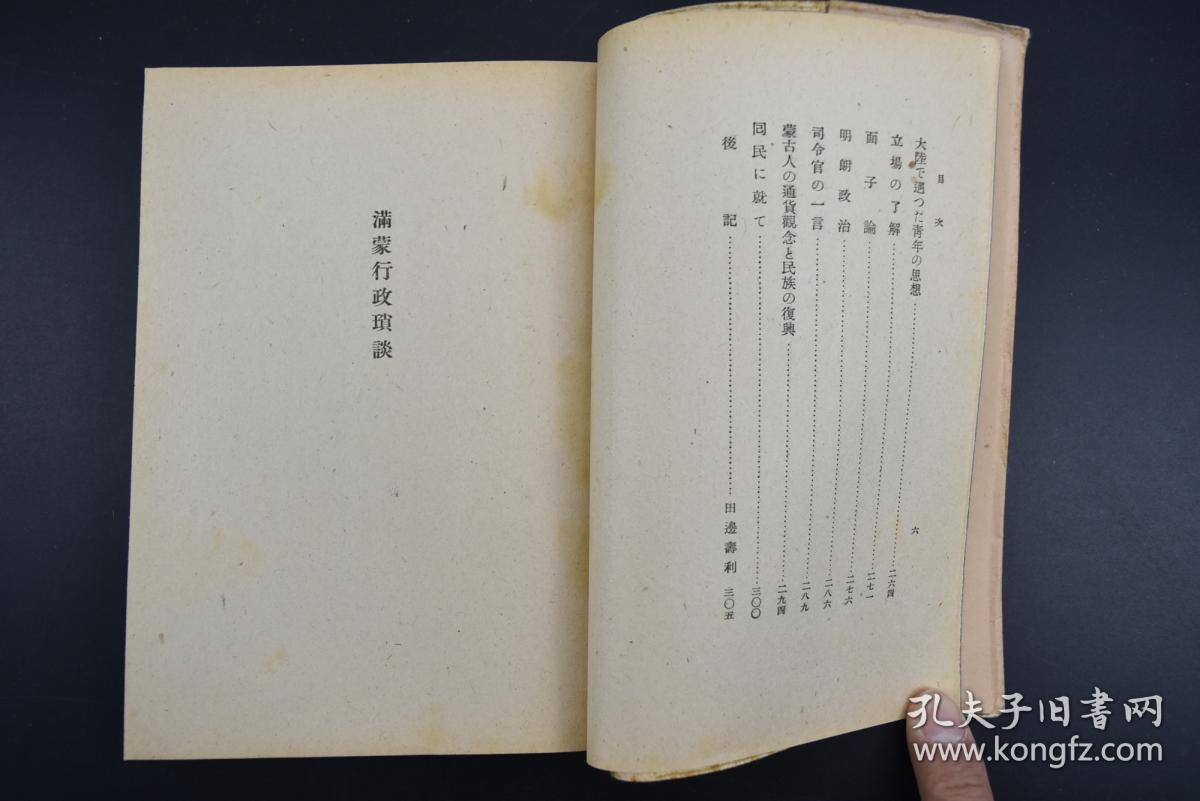 目次
六
大陸で遇つた青年の思想……二六四
立場の了解……二七一
面子論……二七六
明朗政治……二八六
司令官の一言……二八九
蒙古人の通貨觀念と民族の復興……二九四
囘民に就て……三〇〇
後記……田邊壽利 三〇五
滿蒙行政瑣談
孔夫子旧书网
www.kongfz.com